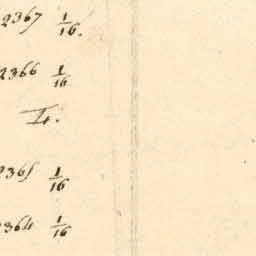 2367 1/16.
2366 1/16
I4.
2365 1/16
2364 1/16